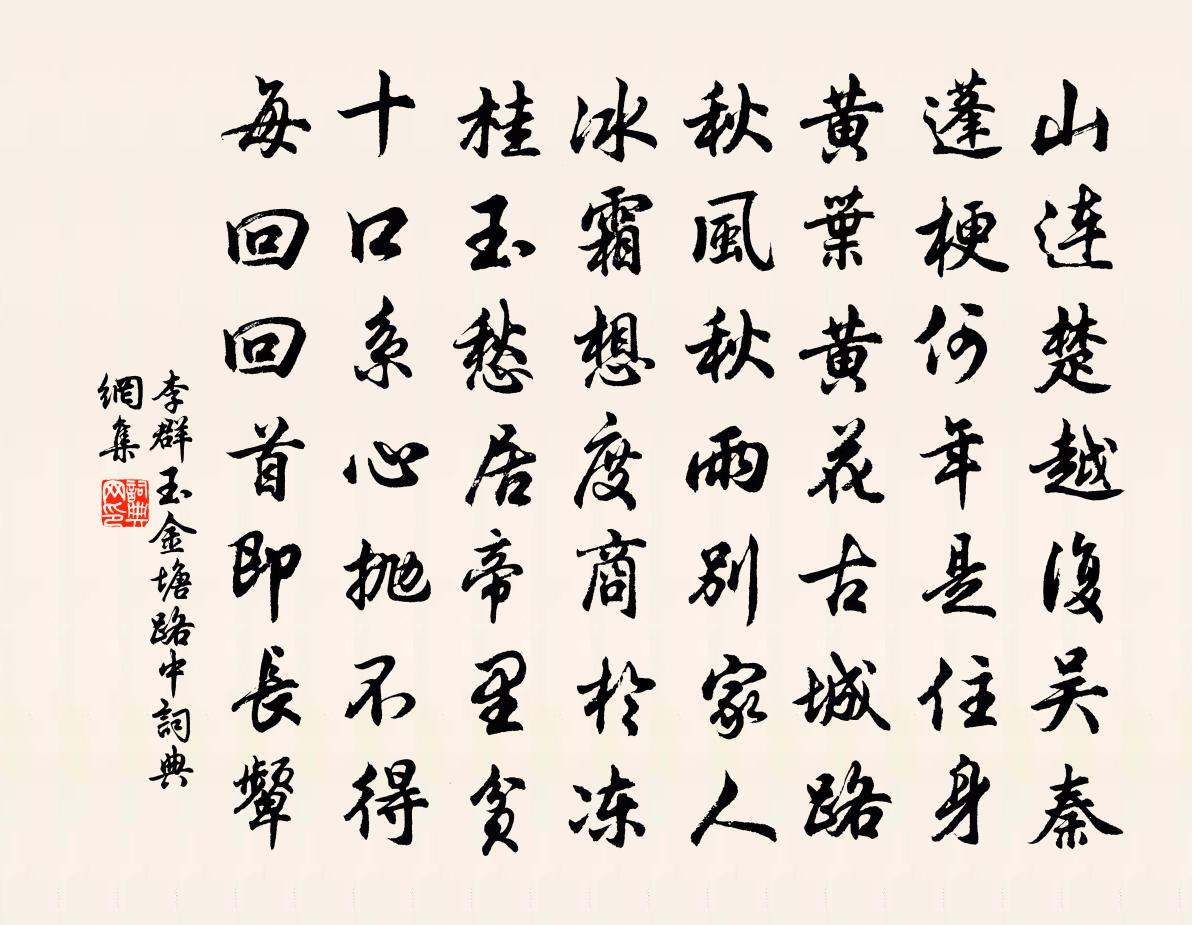 山連楚越復吳秦
蓬梗何年是住身
黃葉黃花古城路
秋風秋雨別家人
冰霜想度商於凍
桂玉愁居帝里貧
十口系心拋不得
每回回首即長顰
李群玉金塘路中詞典
網集
詞典
网印